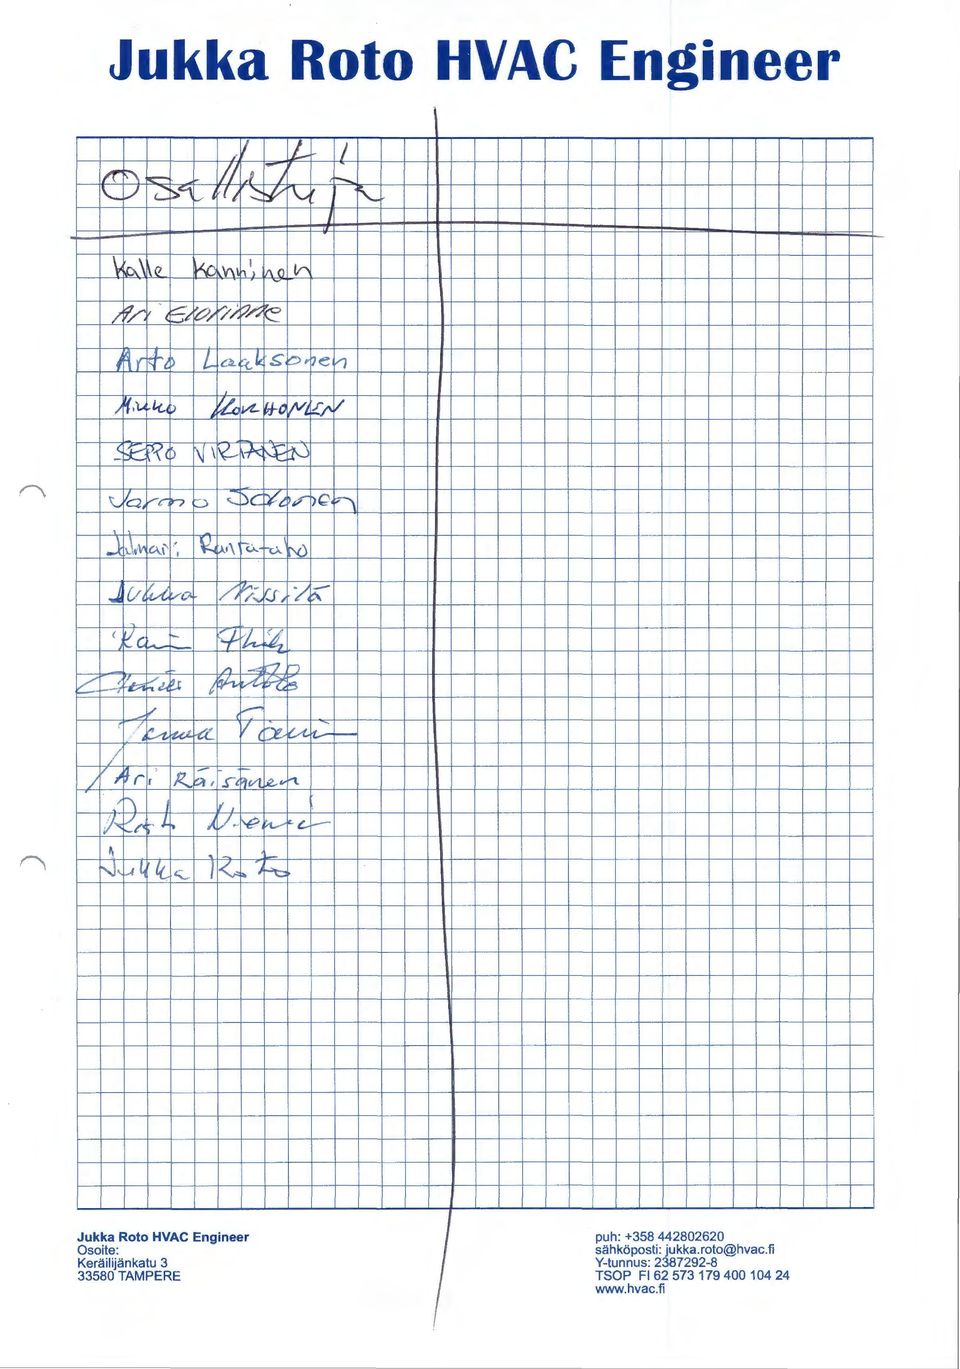 Jukka Roto HVAC Engineer
Osallistuja
Kalle Kanninen
Ari Elorinne
Arto Laaksonen
Mikko KORHONEN
SEPPO VIRTANEN
Jarmo Salonen
Jalmari Rantaaho
Jukka Nissilä
Kari
Ari Räisänen
Niemi
Jukka Roto
Jukka Roto HVAC Engineer
Osoite:
Keräilijänkatu 3
33580 TAMPERE
puh: +358 442802620
sähköposti: jukka.roto@hvac.fi
Y-tunnus: 2387292-8
TSOP FI 62 573 179 400 104 24
www.hvac.fi